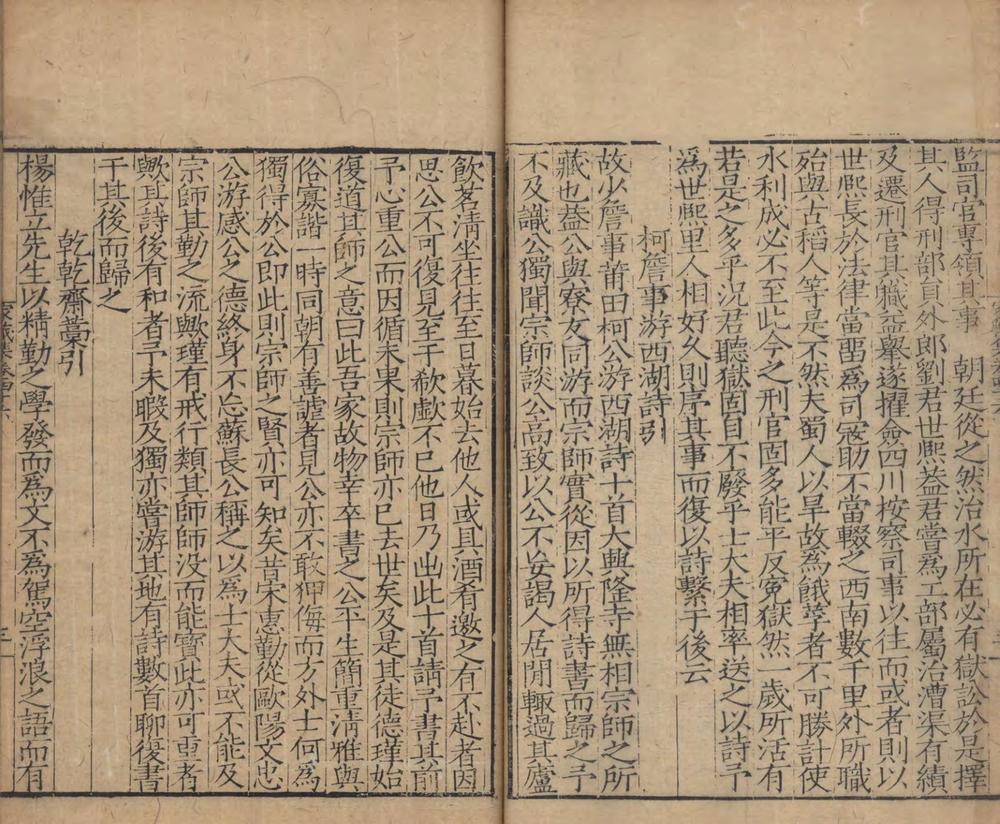 監司官專領其事　朝廷從之然治水所在必有獄訟於是擇
其人得刑部員外郎劉君世熙葢君嘗爲工部屬治漕渠有績
及遷刑官其職益舉遂擢僉四川按察司事以往而或者則以
世熙長於法律當畱爲司寇助不當輟之西南數千里外所職
殆與古稻人等是不然夫蜀人以旱故爲餓莩者不可勝計使
水利成必不至此今之刑官固多能平反寃獄然一歲所活有
若是之多乎况君聽獄固自不廢乎士大夫相率送之以詩予
爲世熙里人相好久則序其事而復以詩繫于後云
柯詹事游西湖詩引
故少詹事莆田柯公游西湖詩十首大興隆寺無相宗師之所
藏也葢公與寮友同游而宗師實從因以所得詩書而歸之予
不及識公獨聞宗師談公高致以公不妄謁人居閒輙過其廬
飲茗淸坐往往至日暮始去他人或具酒肴邀之有不赴者因
思公不可復見至于欷歔不已他日乃出此十首請予書其前
予心重公而因循未果則宗師亦已去世矣及是其徒德瑾始
復道其師之意曰此吾家故物幸卒書之公平生簡重淸雅與
俗寡諧一時同朝有善謔者見公亦不敢狎侮而方外士何爲
獨得於公即此則宗師之賢亦可知矣昔宋惠勤從歐陽文忠
公游感公之德終身不忘蘇長公稱之以爲士大夫或不能及
宗師其勤之流歟瑾有戒行類其師師没而能寶此亦可重者
歟其詩後有和者予未暇及獨亦嘗游其地有詩數首聊復書
于其後而歸之
乾乾齋藁引
楊惟立先生以精勤之學發而爲文不爲駕空浮浪之語而有